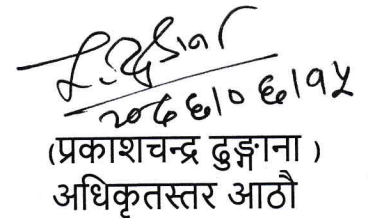 २०८६।०६।१५
(प्रकाशचन्द्र ढुङ्गाना )
अधिकृतस्तर आठौ